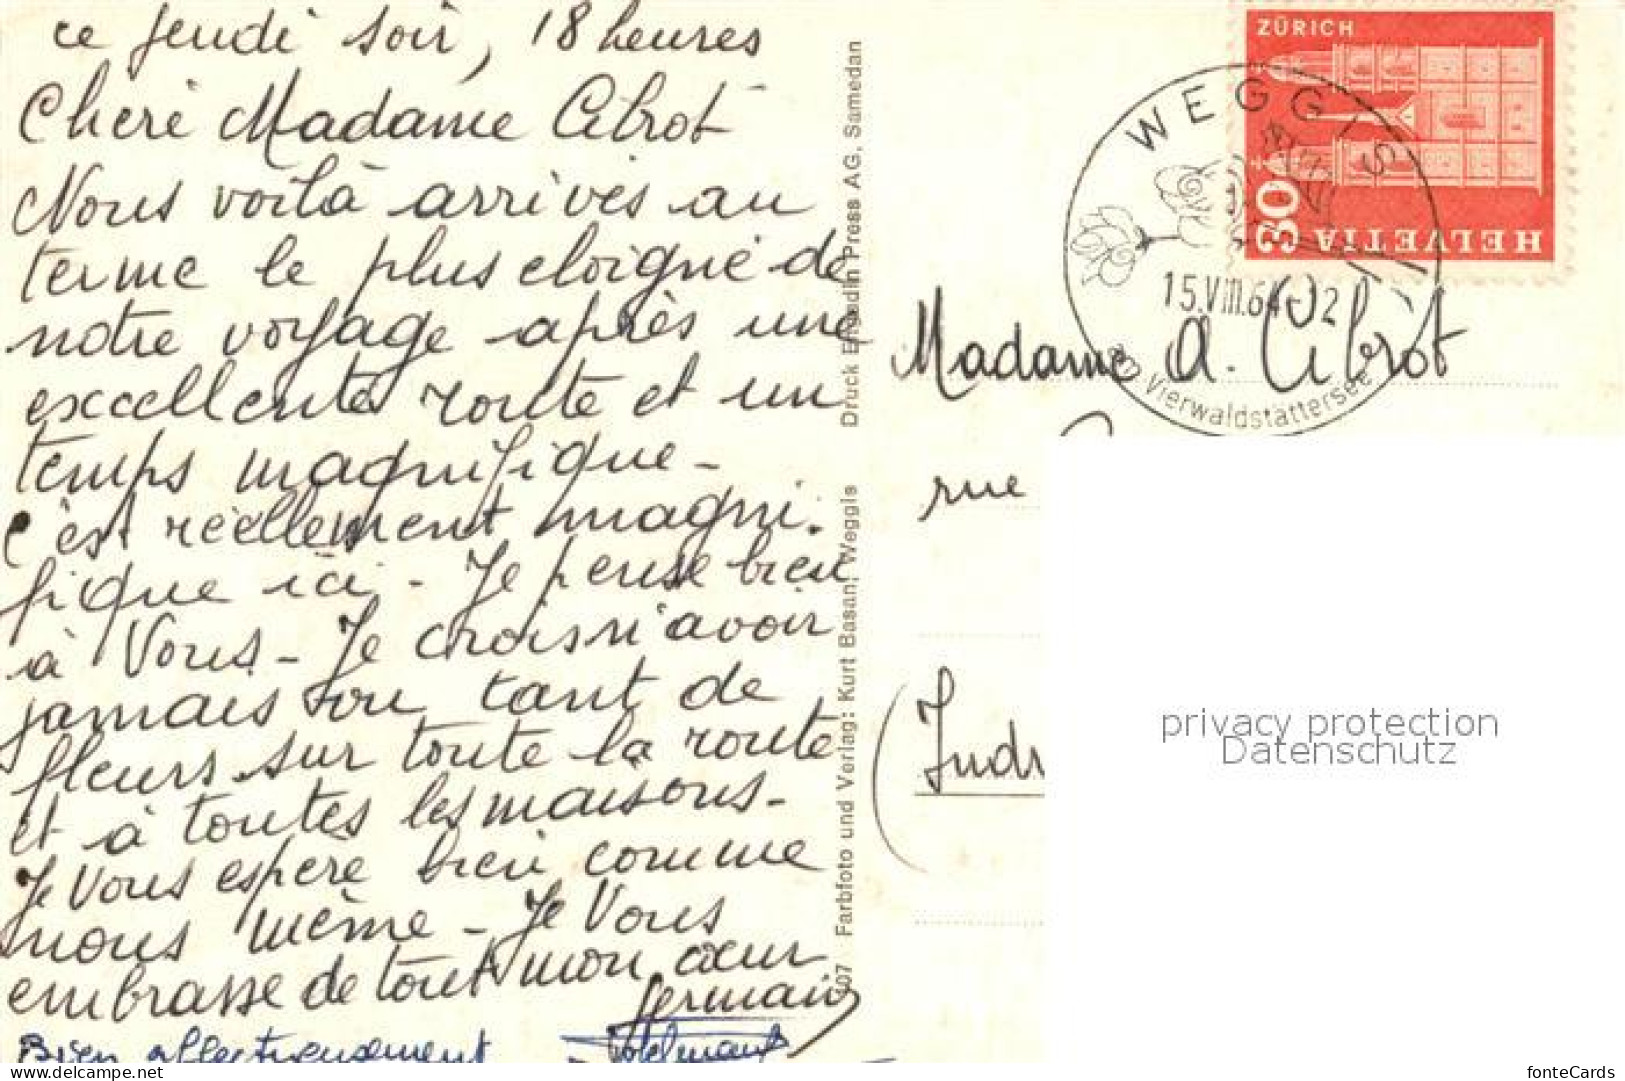 ce jeudi soir, 18 heures
Cheré Madame Cibrot
Nous voilà arrivés au
terme le plus eloigné de
notre voyage après une
excellente route et un
temps magnifique -
C'est réellement magni-
fique ici - Je pense bien
à Vous - Je crois n'avoir
jamais vu tant de
fleurs sur toute la route
et à toutes les maisons -
Je Vous espère bien comme
nous même - Je Vous
embrasse de tout mon cœur
Germaine
Bien affectueusement
107 Farbfoto und Verlag: Kurt Basan, Weggis Druck Engadin Press AG, Samedan
ZÜRICH
30
HELVETIA
WEGGIS
15.VIII.64
Vierwaldstättersee
Madame A. Cibrot
rue
(Indr
privacy protection
Datenschutz
fonteCards